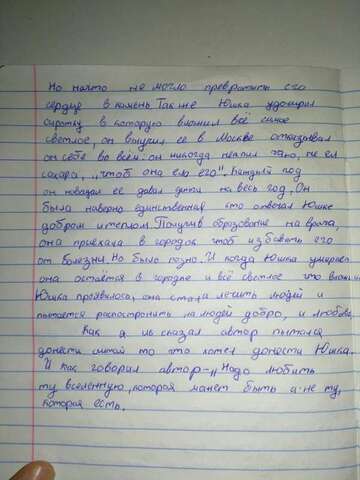 Но ничто не могло превратить его
сердце в камень Так же Юшка удочерил
сиротку в которую вложил всё самое
светлое, он выучил ее в Москве отказывал
он себе во всем: он никогда не пил чаю, не ел
сахара, „чтоб она ела его". Каждый год
он навещал ее давал деньги на весь год. Он
была наверно единственная кто отвечал Юшке
добром и теплом Получив образование на врача,
она приехала в городок чтоб избавить его
от болезни. Но было поздно. И когда Юшка умирает
она остаётся в городке и всё светлое что вложил
Юшка проявилось, она стала лечить людей и
пытается распостронить на людей добро, и любовь.
Как я и сказал автор пытался
донести читай то что хотел донести Юшка.
И как говорил автор -,, Надо любить
ту вселенную, которая может быть а не ту,
которая есть.